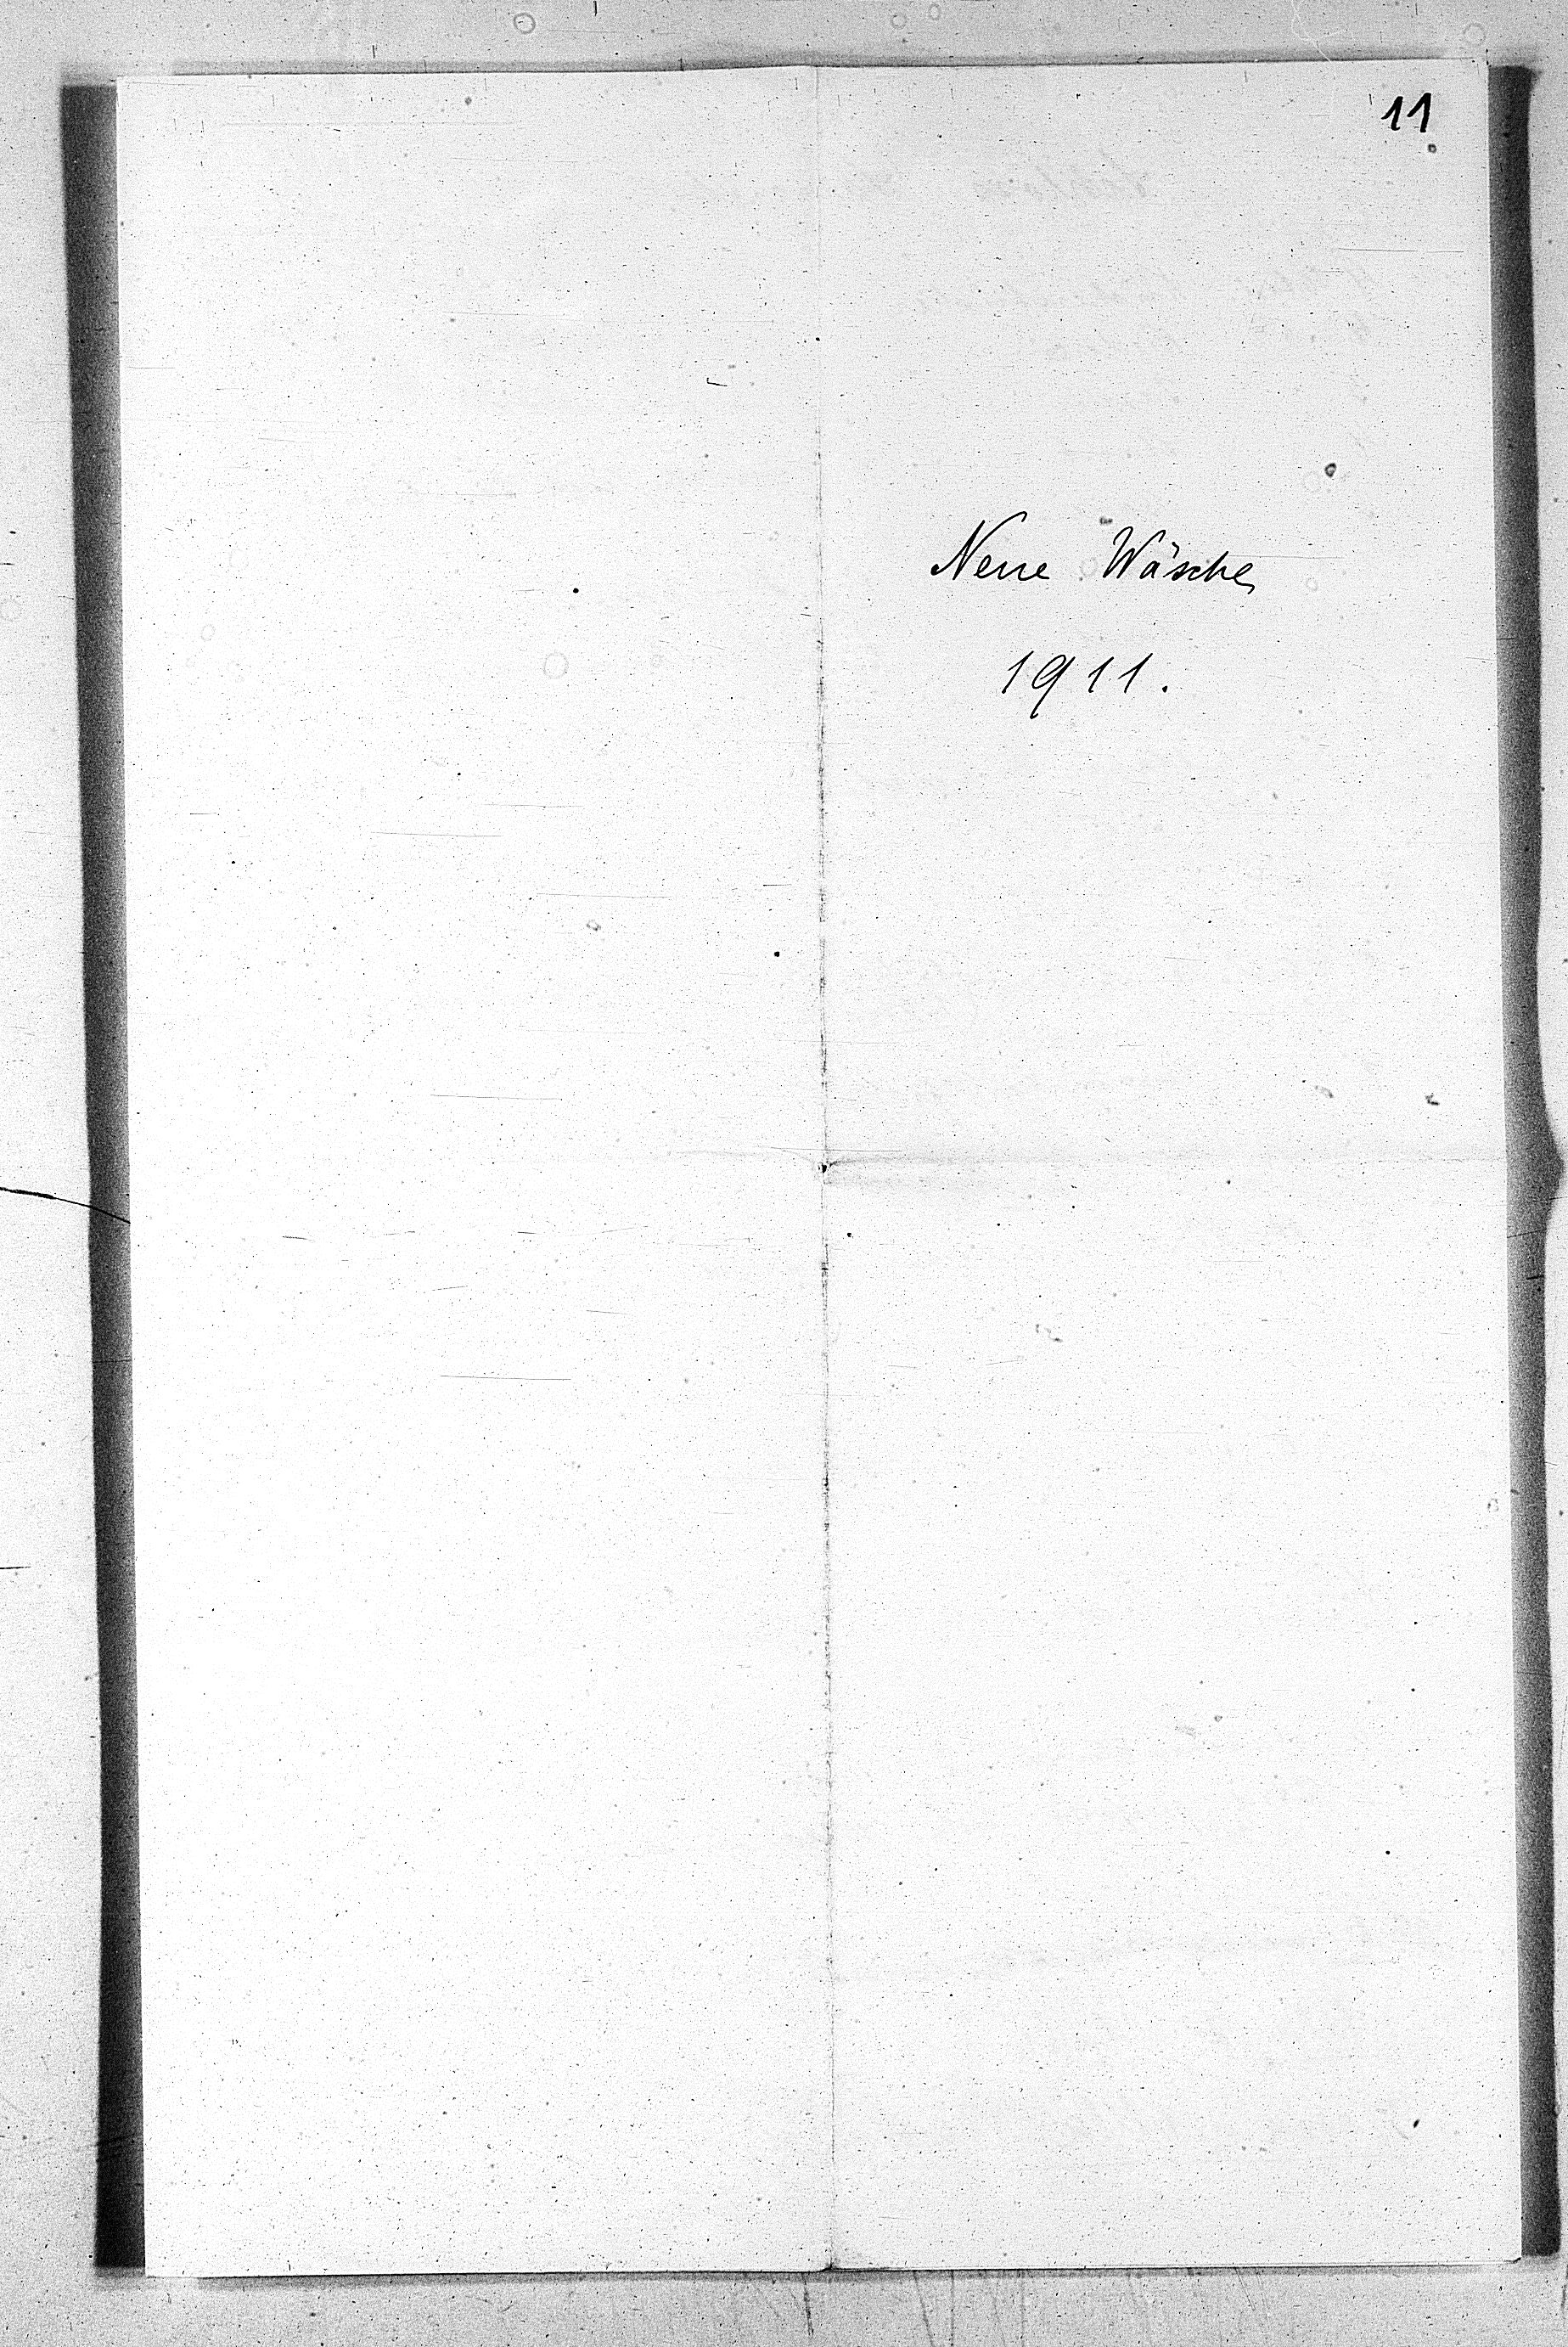 11
Neue Wäsche
1911.